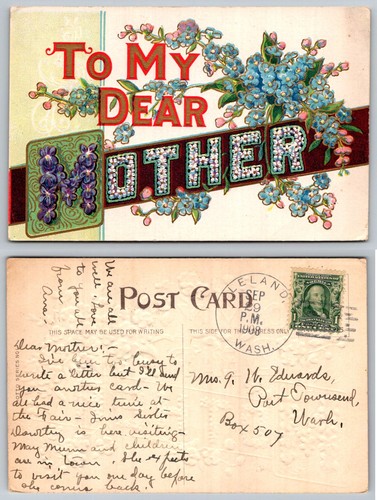 TO MY
DEAR
MOTHER
We are all
well. Love
to you all
from
POST CARD
THIS SPACE MAY BE USED FOR WRITING
THIS SIDE FOR THE
LELAND,
SEP
9
P.M.
1908
WASH.
Dear Mother:-
I've been too busy to
write a letter but I'll send
you another card - We
all had a nice time at
the Fair - Inns Sister
Dorothy is here visiting -
May Munn and children
are in town. She expects
to visit you one day before
she comes back.
Mrs. J. W. Edwards,
Port Townsend,
Wash.
Box 507